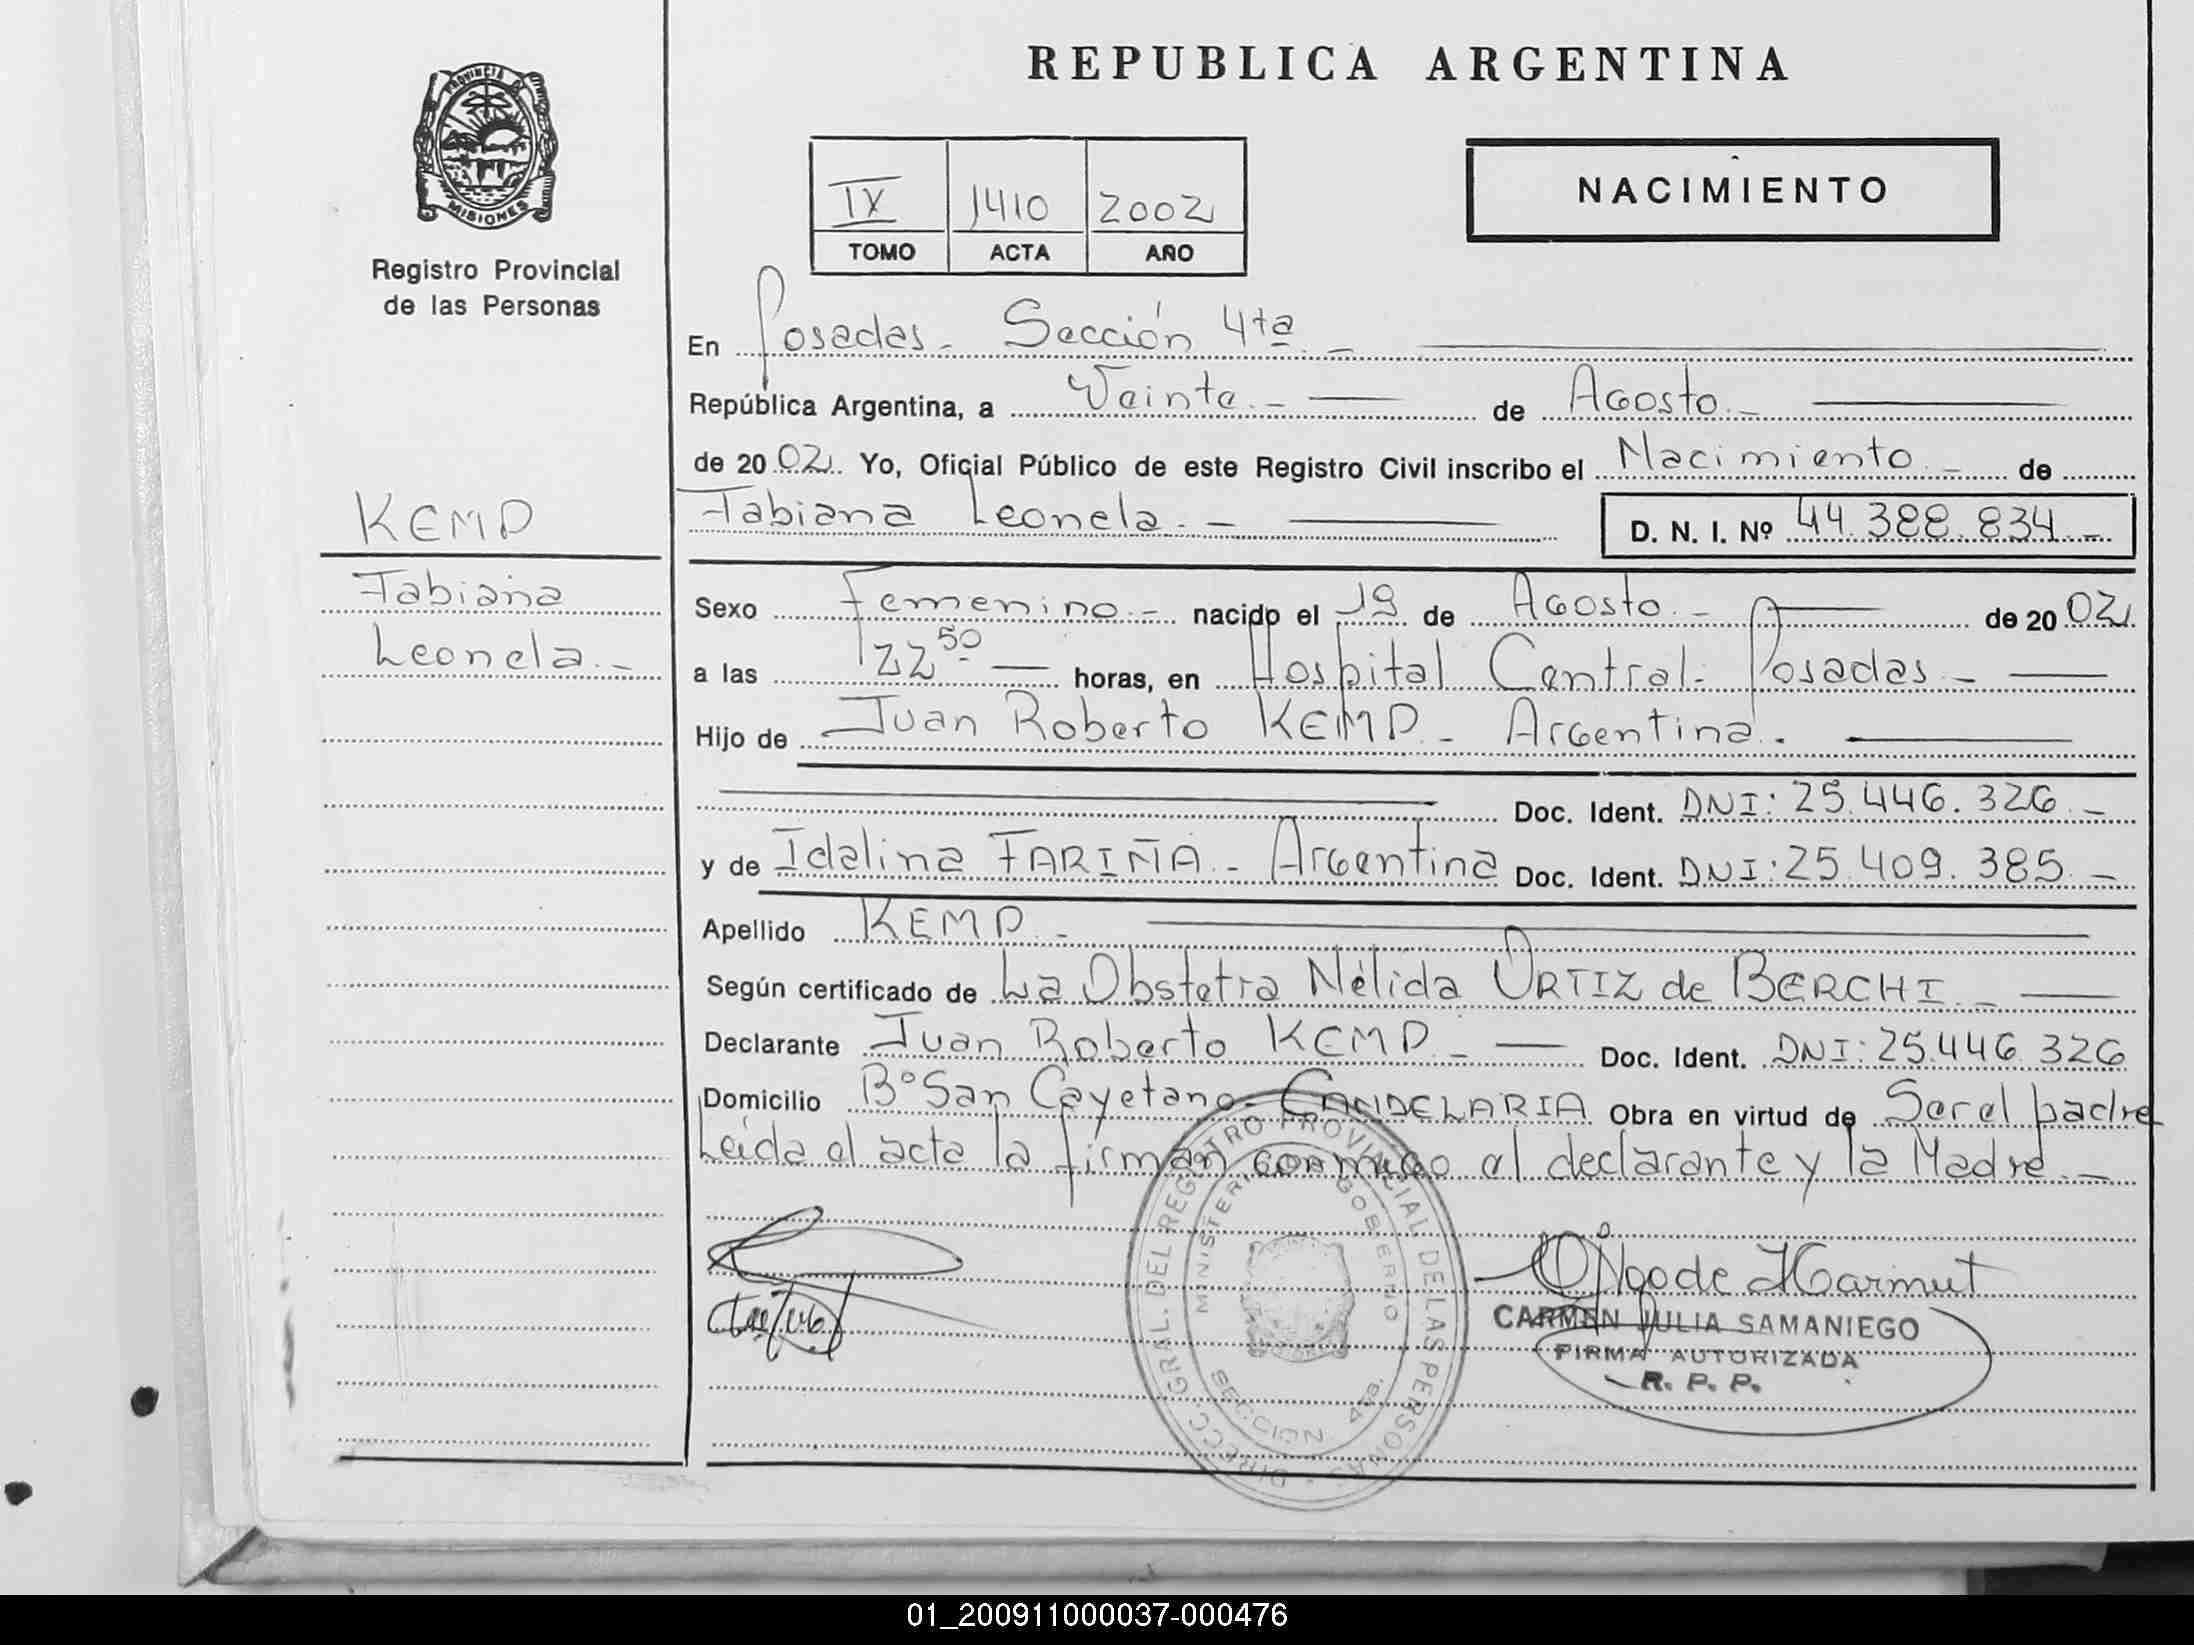 REPUBLICA ARGENTINA
PROVINCIA DE
MISIONES
Registro Provincial
de las Personas
IX 1410 2002
TOMO ACTA AÑO
NACIMIENTO
En Posadas - Sección 4ta. -
República Argentina, a Veinte. - de Agosto. -
de 2002. Yo, Oficial Público de este Registro Civil inscribo el Nacimiento. - de
Fabiana Leonela. -
D. N. I. Nº 44.388.834. -
KEMP
Fabiana
Leonela. -
Sexo Femenino. - nacido el 19 de Agosto. - de 2002.
a las 22 50 horas, en Hospital Central. Posadas. -
Hijo de Juan Roberto KEMP. - Argentina. -
Doc. Ident. DNI: 25.446.326. -
y de Idalina FARIÑA. - Argentina Doc. Ident. DNI: 25.409.385. -
Apellido KEMP. -
Según certificado de La Obstetra Nélida ORTIZ de BERCHI. -
Declarante Juan Roberto KEMP. - Doc. Ident. DNI: 25.446.326
Domicilio Bº San Cayetano - CANDELARIA Obra en virtud de Ser el padre
Leida el acta la firman conmigo el declarante y la Madre. -
DIRECC. GRAL. DEL REGISTRO PROVINCIAL DE LAS PERSONAS
MINISTERIO DE GOBIERNO
SECCION 4ta.
de Harmut
CARMEN JULIA SAMANIEGO
FIRMA AUTORIZADA
R. P. P.
01_200911000037-000476